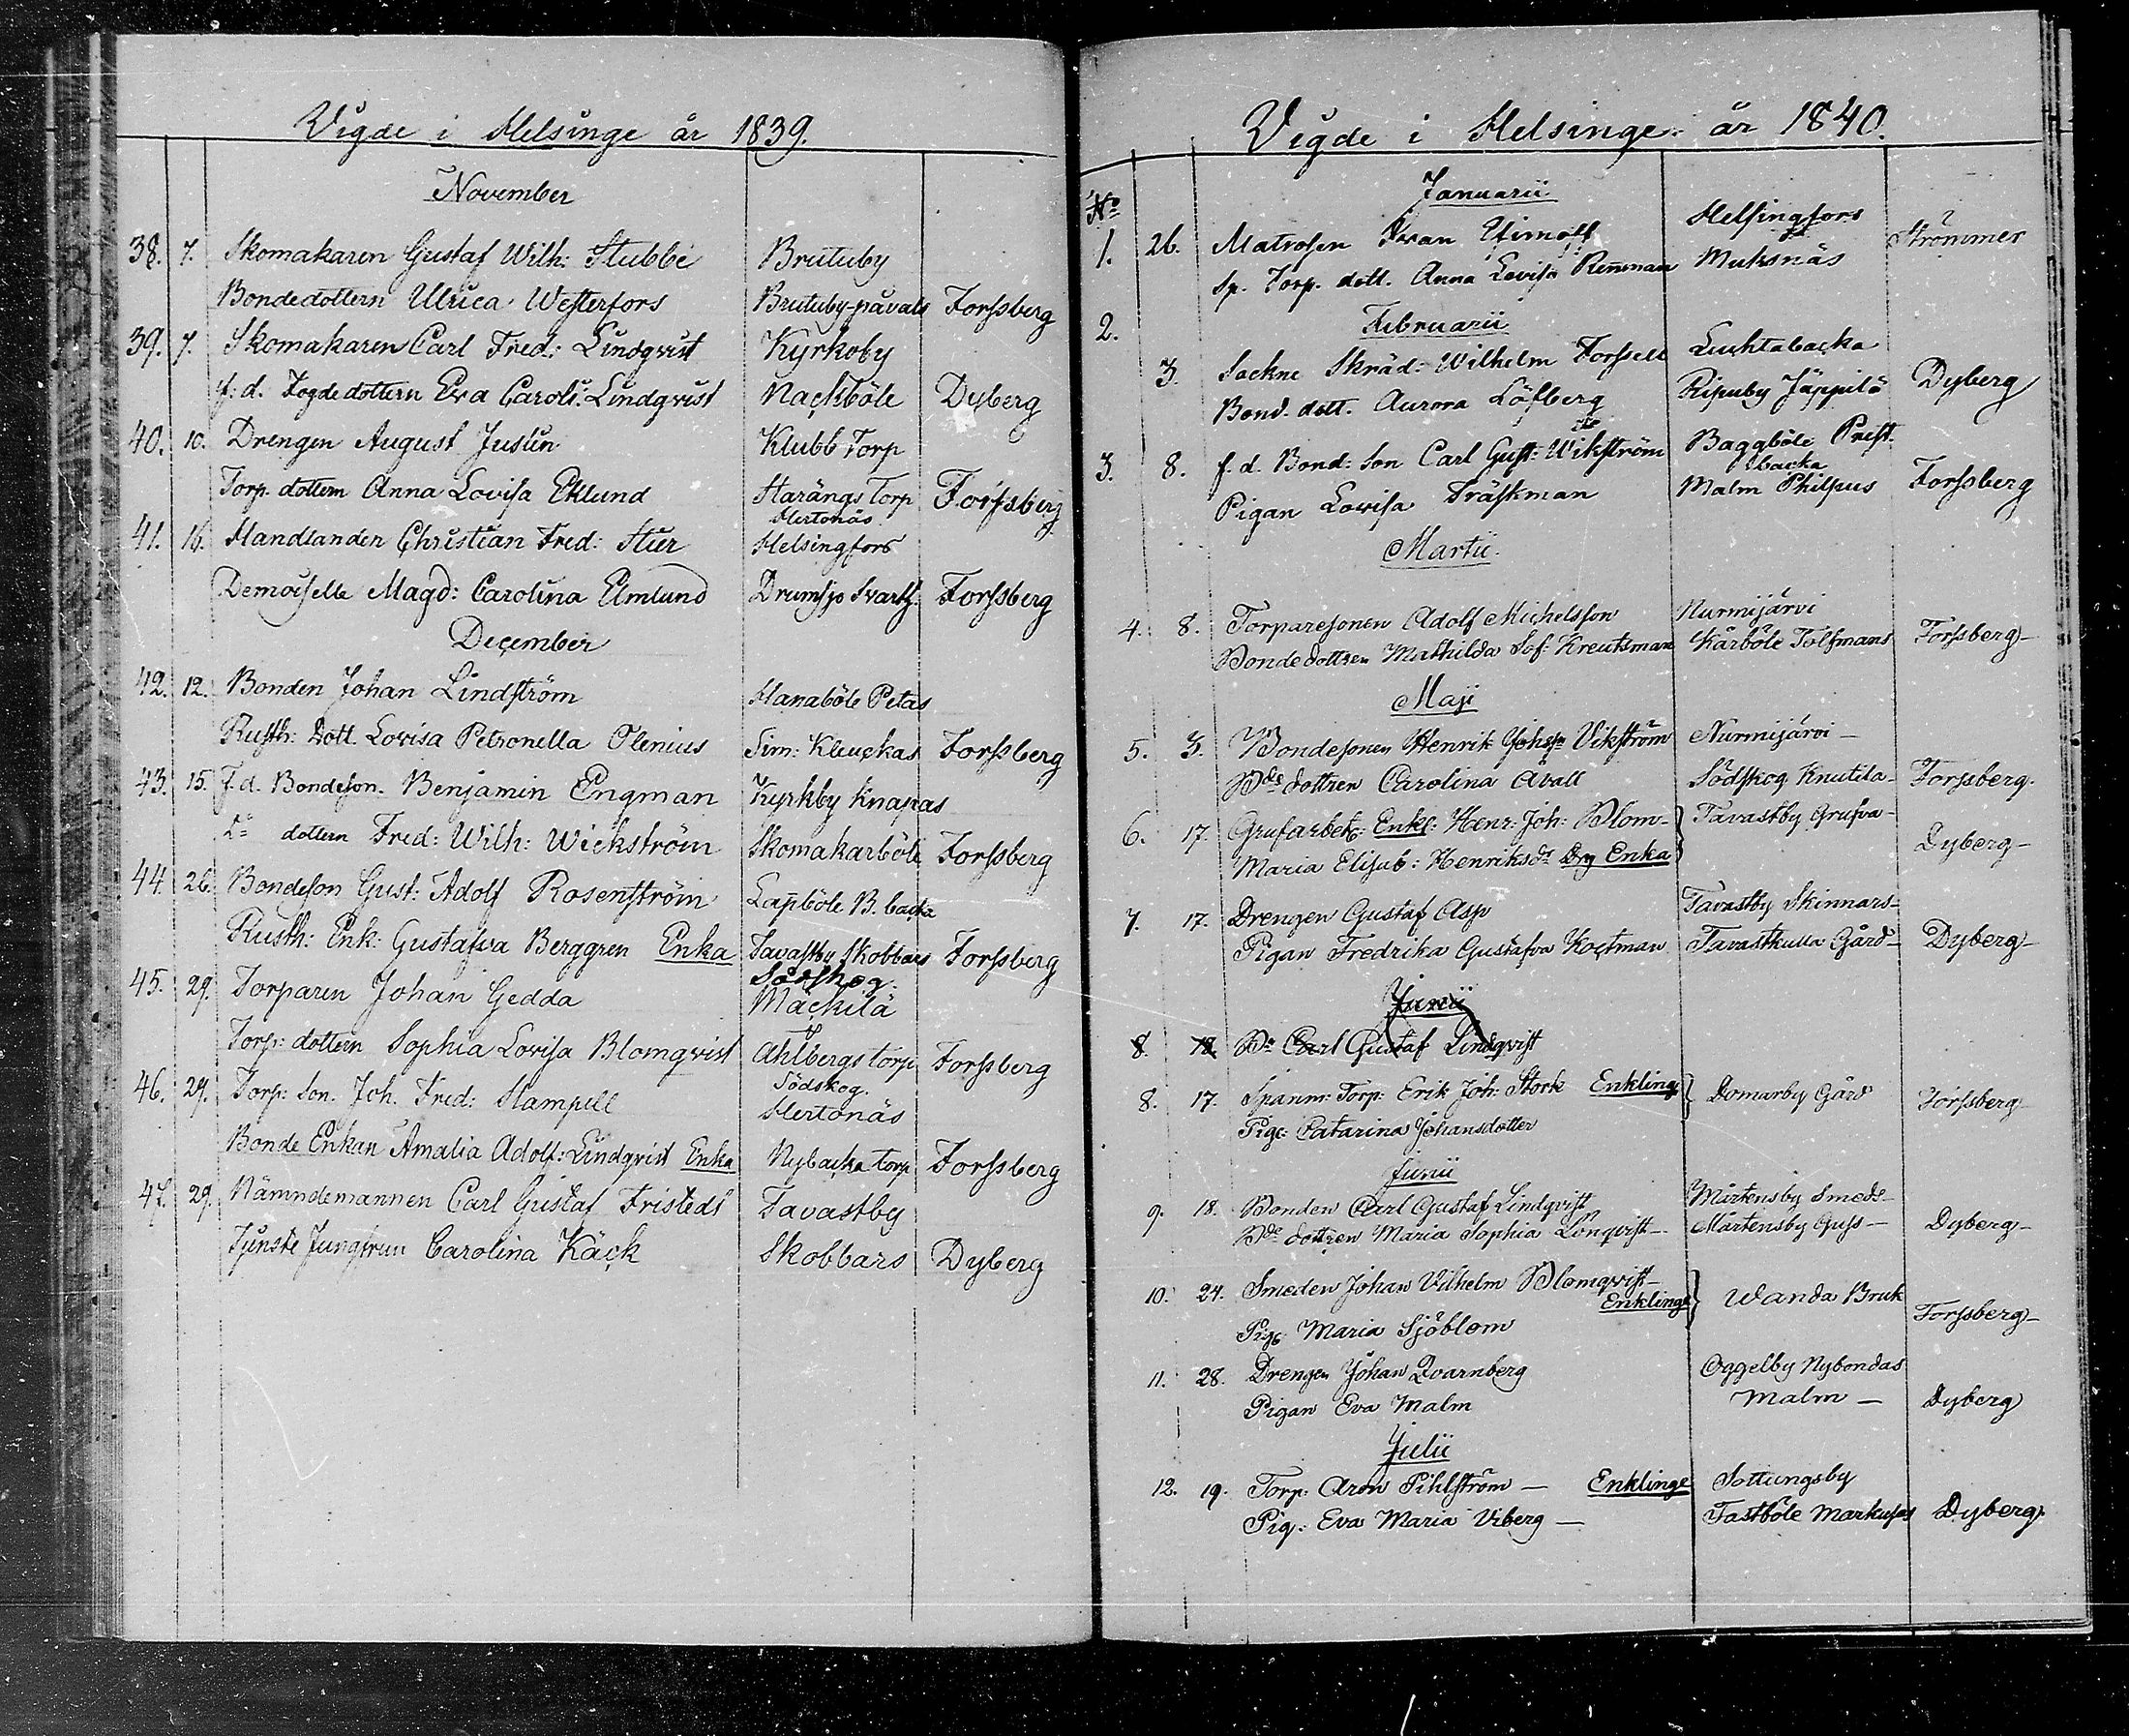 Vigde i Helsinge år 1839.
November
38. 7. Skomakaren Gustaf Wilh: Stubbe Brutuby
Bondedottern Ulrica Westerfors Brutuby-påvals Forssberg
39. 7. Skomakaren Carl Fred: Lindqvist Kyrkoby
f: d. Fogdedottern Eva Carol: Lindqvist Nackböle Dyberg
40. 10. Drengen August Juslin Klubb Torp
Torp. dottern Anna Lovisa Eklund Harängs Torp Forssberg
Hertonäs
41. 16. Handlanden Christian Fred: Stur Helsingfors
Demoiselle Magd: Carolina Elmlund Drumsjo Svartz. Forssberg
December
42. 12. Bonden Johan Lindström Hanaböle Petas
Rusth: Dott. Lovisa Petronella Olenius Sim: Kleuckas Forssberg
43. 15. F. d. Bondeson. Benjamin Engman Kyrkby Knapas
Do dottern Fred: Wilh: Wickström Skomakarböle Forssberg
44. 26. Bondeson Gust: Adolf Rosenström Lapböle B. backa
Rusth: Enk: Gustafva Berggren Enka Tavastby Skobbars Forssberg
45. 29. Torparen Johan Gedda Södskog. Mackilä
Torp: dottern Sophia Lovisa Blomqvist Ahlbergs torp Forssberg
Södskog.
46. 29. Torp: son. Joh. Fred: Hampell Hertonäs
Bonde Enkan Amalia Adolf: Lindqvist Enka Nybacka torp Forssberg
47. 29. Nämndemannen Carl Gustaf Fristedt Tavastby
Tjenste Jungfrun Carolina Käck Skobbars Dyberg
Vigde i Helsinge år 1840.
No Januarii
1. 26. Matrosen Ivan Efimoff Helsingfors
Sp. Torp. dott. Anna Lovisa Renman Muksnäs Strömmer
2. Februarii
3. Sockne Skräd: Wilhelm Forssell Luchtabacka
Bond. dott. Aurora Löfberg Ripuby Jäppilä Dyberg
3. 8. f. d. Bond: son Carl Gust: Wikström Baggböle Prest.
backa
Pigan Lovisa Träskman Malm Philpus Forssberg
Martii.
4. 8. Torparesonen Adolf Michelsson Nurmijärvi
Bondedottren Mathilda Sof: Kreutsman Kårböle Tolfmans Forssberg-
Maji
5. 3. Bondesonen Henrik Johss Vikström Nurmijärvi -
Bde dottren Carolina Avall Södskog Knutila- Forssberg.
6. 17. Grufarbet: Enkl: Henr. Joh: Blom- Tavastby Grufva-
Maria Elisab: Henriksdr Enka Dyberg-
7. 17. Drengen Gustaf Asp Tavastby Skinnars-
Pigan Fredrika Gustafva Koctman Tavastkulla Gård- Dyberg-
Junii
8. 18. Bn Carl Gustaf Lindqvist
8. 17. Spanm: Torp: Erik Joh: Stork Enkling Domarby Gård Forssberg-
Pig: Catarina Johansdotter
Junii
9. 18. Bonden Carl Gustaf Lindqvist Mårtensby Smeds-
Bde dottren Maria Sophia Lönqvist- Mårtensby Guss- Dyberg-
10. 24. Smeden Johan Vilhelm Blomqvist-
Enklinge Wanda Bruk
Pig: Maria Sjöblom Forssberg-
11. 28. Drengen Johan Qvarnberg Oggelby Nybondas
Pigan Eva Malm Malm - Dyberg
Julii
12. 19. Torp: Aron Pihlström - Enklinge Sottungsby
Pig: Eva Maria Viberg - Fastböle Markusas Dyberg.